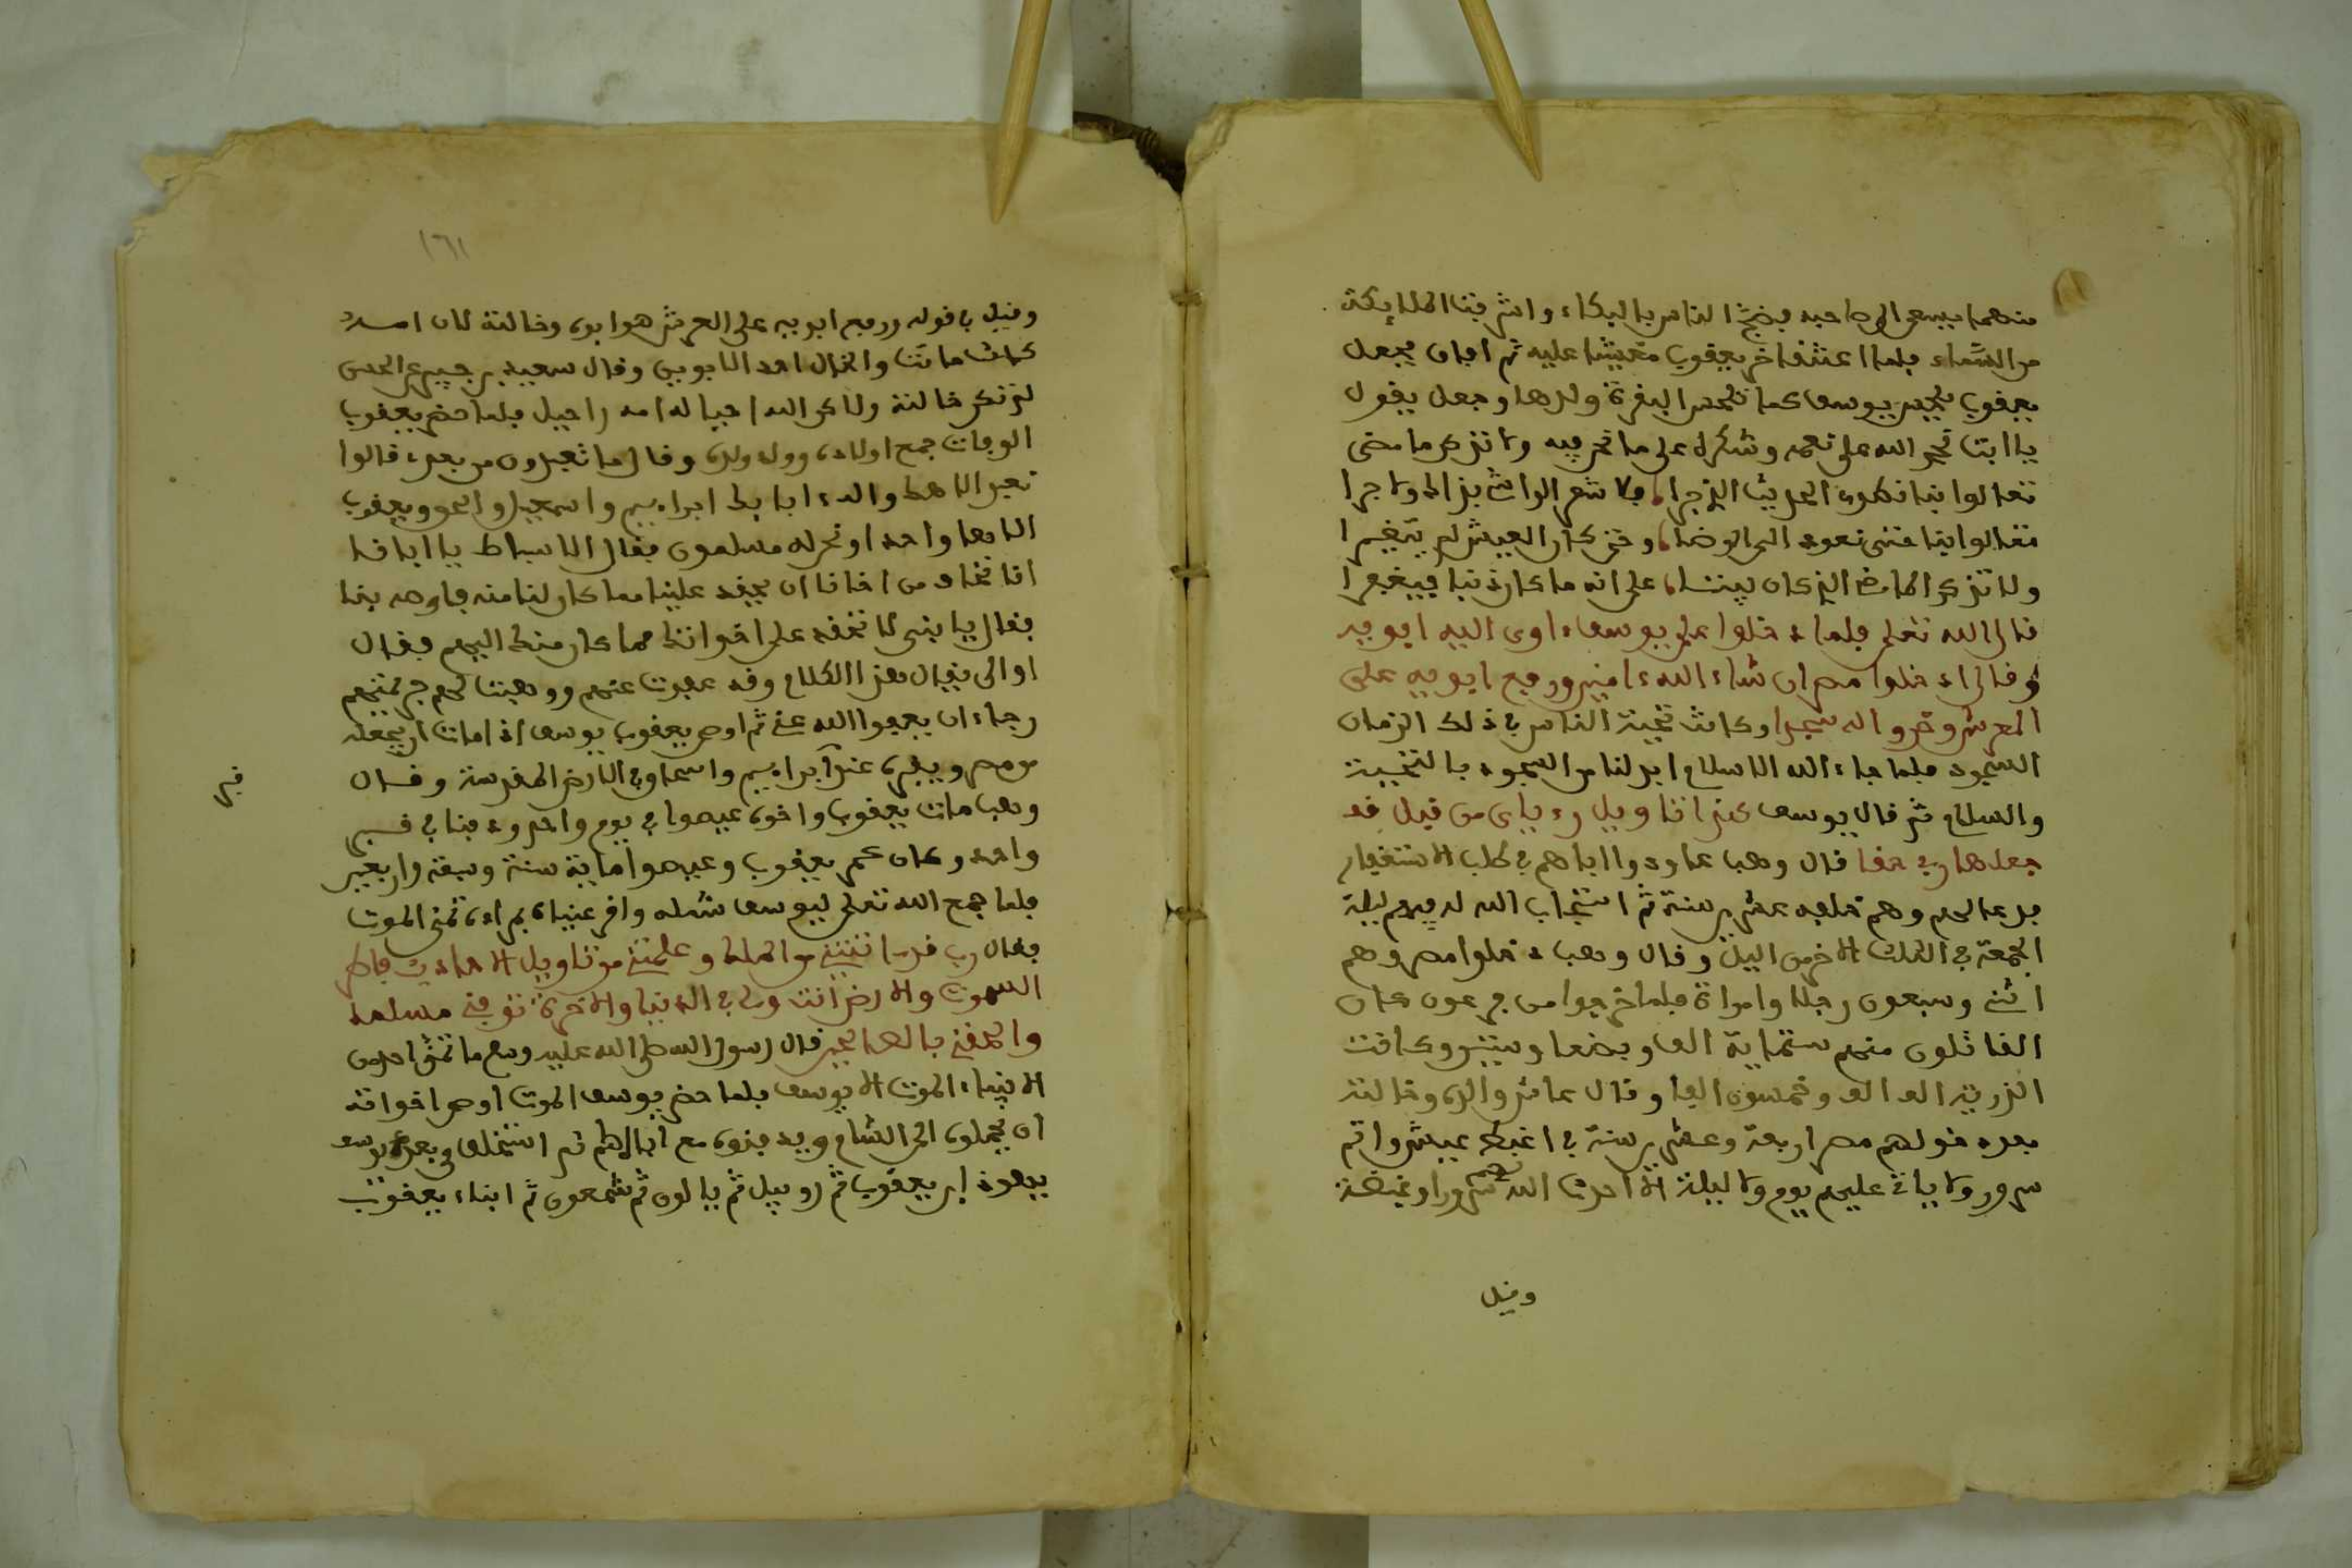 منهما يسعى الى صاحبه فضج الناس بالبكاء واشرفت الملايكة
من السماء فلما اعتنقا خر يعقوب مغشيا عليه ثم افاق فجعل
يعقوب يلحس يوسف كما تلحس البقرة ولدها وجعل يقول
يا ابت نحمد الله على نعمه وشكره على ما نحن فيه ولا تذكر ما مضى
تعالوا بنا نطوى الحديث الذي جرا فلا سمع الواشي بذاك ولا درا
تعالوا بنا حتى نعود الى الرضا وحتى كان العيش لم يتغيرا
ولا تذكر الماضي الذي كان بيننا على انه ما كان ذنبا فيغفرا
قال الله تعلى فلما دخلوا على يوسف ءاوى اليه ابويه
وقال ادخلوا مصر ان شاء الله ءامنين ورفع ابويه على
العرش وخروا له سجدا وكانت تحية الناس في ذلك الزمان
السجود فلما جاء الله الاسلام ابدلنا من السجود بالتحية
والسلام ثم قال يوسف هذا تاويل رءياى من قبل قد
جعلها ربي حقا قال وهب عاودوا اباهم في طلب الاستغفار
فدعا لهم وهم خلفه عشرين سنة ثم استجاب الله له فيهم ليلة
الجمعة في الثلث الاخر من اليل وقال وهب دخلوا مصر وهم
اثنى وسبعون رجلا وامراة فلما خرجوا من فرعون كان
القاتلون منهم ستماية الف وبضعا وستين وكانت
الذرية الف الف وخمسون الفا وقال عاش والده وخالته
بعد دخولهم مصر اربعة وعشرين سنة في اغبط عيش واتم
سرور ولا ياتي عليهم يوم ولا ليلة الا احدث الله لهم سرورا وغبطة
وقيل
١٦١
وقيل في قوله ورفع ابويه على العرش هو ابوه وخالته لان امه
كانت ماتت والخال احد الابوين وقال سعيد بن جبير عن الحسن
لم تكن خالته ولاكن الله احيا له امه راحيل فلما حضر يعقوب
الوفات جمع اولاده وولد ولده وقال ما تعبدون من بعدي قالوا
نعبد الاهك والاه ءابايك ابراهيم واسمعيل واسحق ويعقوب
الاها واحدا ونحن له مسلمون فقال الاسباط يا ابانا
انا نخاف من اخانا ان يحقد علينا مما كان لنا منه فاوصه بنا
فقال يا بني لا تحقد على اخوانك مما كان منك اليهم فقال
او الى يقال هذا الكلام وقد عفوت عنهم ووهبت لهم جريمتهم
رجاء ان يعفوا الله عني ثم اوصى يعقوب يوسف اذا مات ان يحمله
من مصر ويقبره عند ابراهيم واسحاق في الارض المقدسة وقال
وهب مات يعقوب واخوه عيصوا في يوم واحد ودفنا في قبر
قبر
واحد وكان عمر يعقوب وعيصوا ماية سنة وسبعة واربعين
فلما جمع الله تعلى ليوسف شمله واقر عيناه بمراده تمنى الموت
فقال رب قد ءاتيتني من الملك وعلمتني من تاويل الاحاديث فاطر
السموات والارض انت ولي في الدنيا والاخرة توفني مسلما
والحقني بالصالحين قال رسول الله صلى الله عليه وسلم ما تمنى احد من
الانبياء الموت الا يوسف فلما حضر يوسف الموت اوصى اخواته
ان يحملوه الى الشام ويدفنوه مع ابائهم ثم استخلف في بعده يوسف
يهودا ابن يعقوب ثم روبيل ثم يالون ثم شمعون ثم ابناء يعقوب